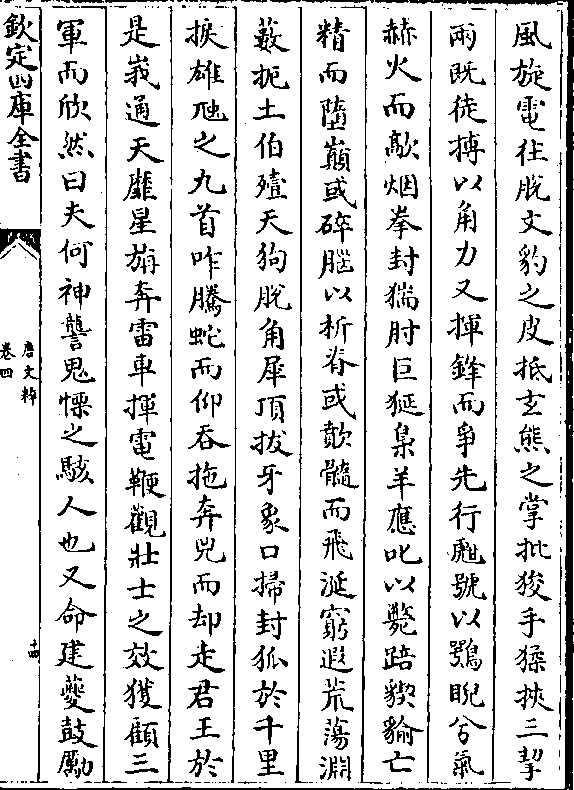 風旋電往脫文豹之皮抵玄熊之掌批狻手猱挾三挈
兩既徒搏以角力又揮鋒而爭先行甝號以鶚睨兮氣
赫火而敵烟拳封貒肘巨狿梟羊應叱以斃踣猰貐亡
精而墮巔或碎腦以折脊或歕髓而飛涎窮遐荒蕩淵
藪扼土伯殪天狗脫角犀頂拔牙象口掃封狐於千里
捩雄虺之九首咋騰蛇而仰吞拖奔兕而却走君王於
是峩通天靡星旃奔雷車揮電鞭觀壯士之效獲顧三
軍而欣然曰夫何神讋鬼慄之駭人也又命建夔鼓勵
欽定四庫全書
唐文粹
卷四
十四